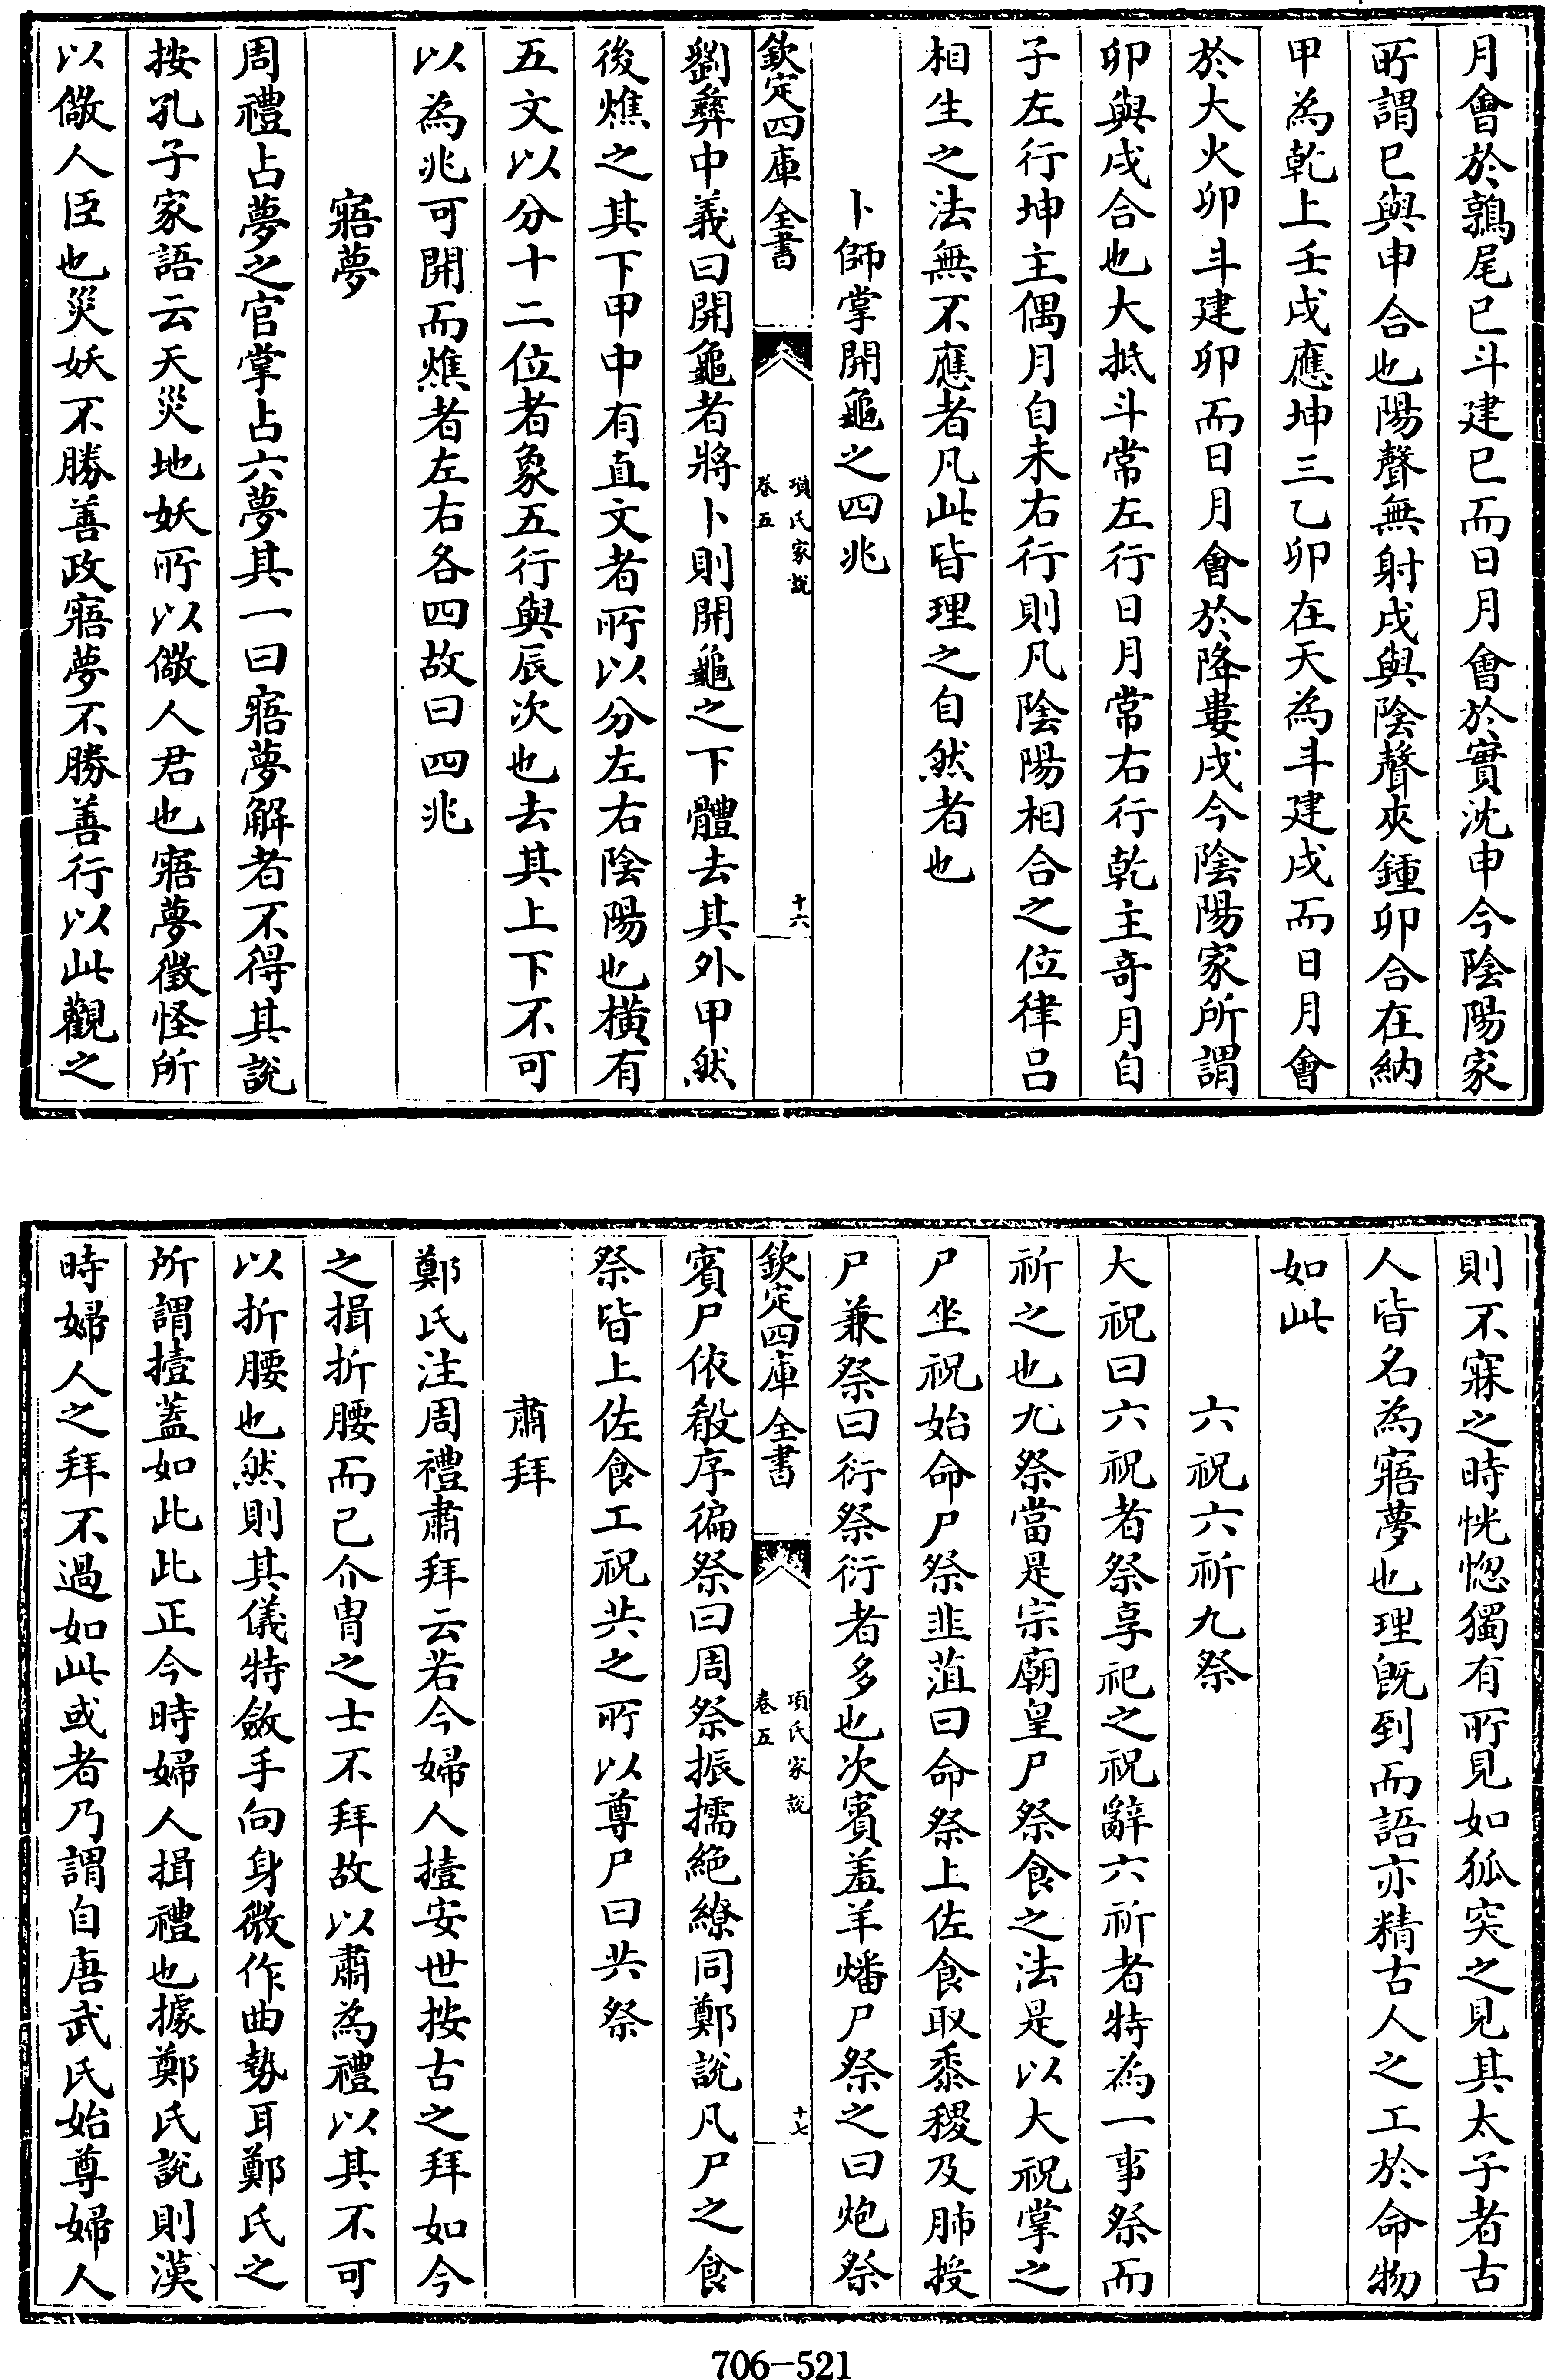 月會於鶉尾巳斗建巳而日月會於實沈申今陰陽家
所謂巳與申合也陽聲無射戌與陰聲夾鍾卯合在納
甲為乾上壬戌應坤三乙卯在天為斗建戌而日月會
於大火卯斗建卯而日月會於降婁戌今陰陽家所謂
卯與戌合也大抵斗常左行日月常右行乾主竒月自
子左行坤主偶月自未右行則凡陰陽相合之位律呂
相生之法無不應者凡此皆理之自然者也
卜師掌開龜之四兆
欽定四庫全書
項氏家說
卷五
十六
劉彝中義曰開龜者將卜則開龜之下體去其外甲然
後燋之其下甲中有直文者所以分左右陰陽也橫有
五文以分十二位者象五行與辰次也去其上下不可
以為兆可開而燋者左右各四故曰四兆
寤夢
周禮占夢之官掌占六夢其一曰寤夢解者不得其說
按孔子家語云天災地妖所以儆人君也寤夢徵怪所
以儆人臣也災妖不勝善政寤夢不勝善行以此觀之
則不寐之時恍惚獨有所見如狐突之見其太子者古
人皆名為寤夢也理旣到而語亦精古人之工於命物
如此
六祝六祈九祭
大祝曰六祝者祭享祀之祝辭六祈者特為一事祭而
祈之也九祭當是宗廟皇尸祭食之法是以大祝掌之
尸坐祝始命尸祭韭菹曰命祭上佐食取黍稷及肺授
尸兼祭曰衍祭衍者多也次賓羞羊燔尸祭之曰炮祭
欽定四庫全書
項氏家說
卷五
十七
賓尸依殽序徧祭曰周祭振擩絕繚同鄭說凡尸之食
祭皆上佐食工祝共之所以尊尸曰共祭
肅拜
鄭氏注周禮肅拜云若今婦人撎安世按古之拜如今
之揖折腰而已介冑之士不拜故以肅為禮以其不可
以折腰也然則其儀特斂手向身微作曲勢耳鄭氏之
所謂撎蓋如此此正今時婦人揖禮也據鄭氏說則漢
時婦人之拜不過如此或者乃謂自唐武氏始尊婦人
706-521